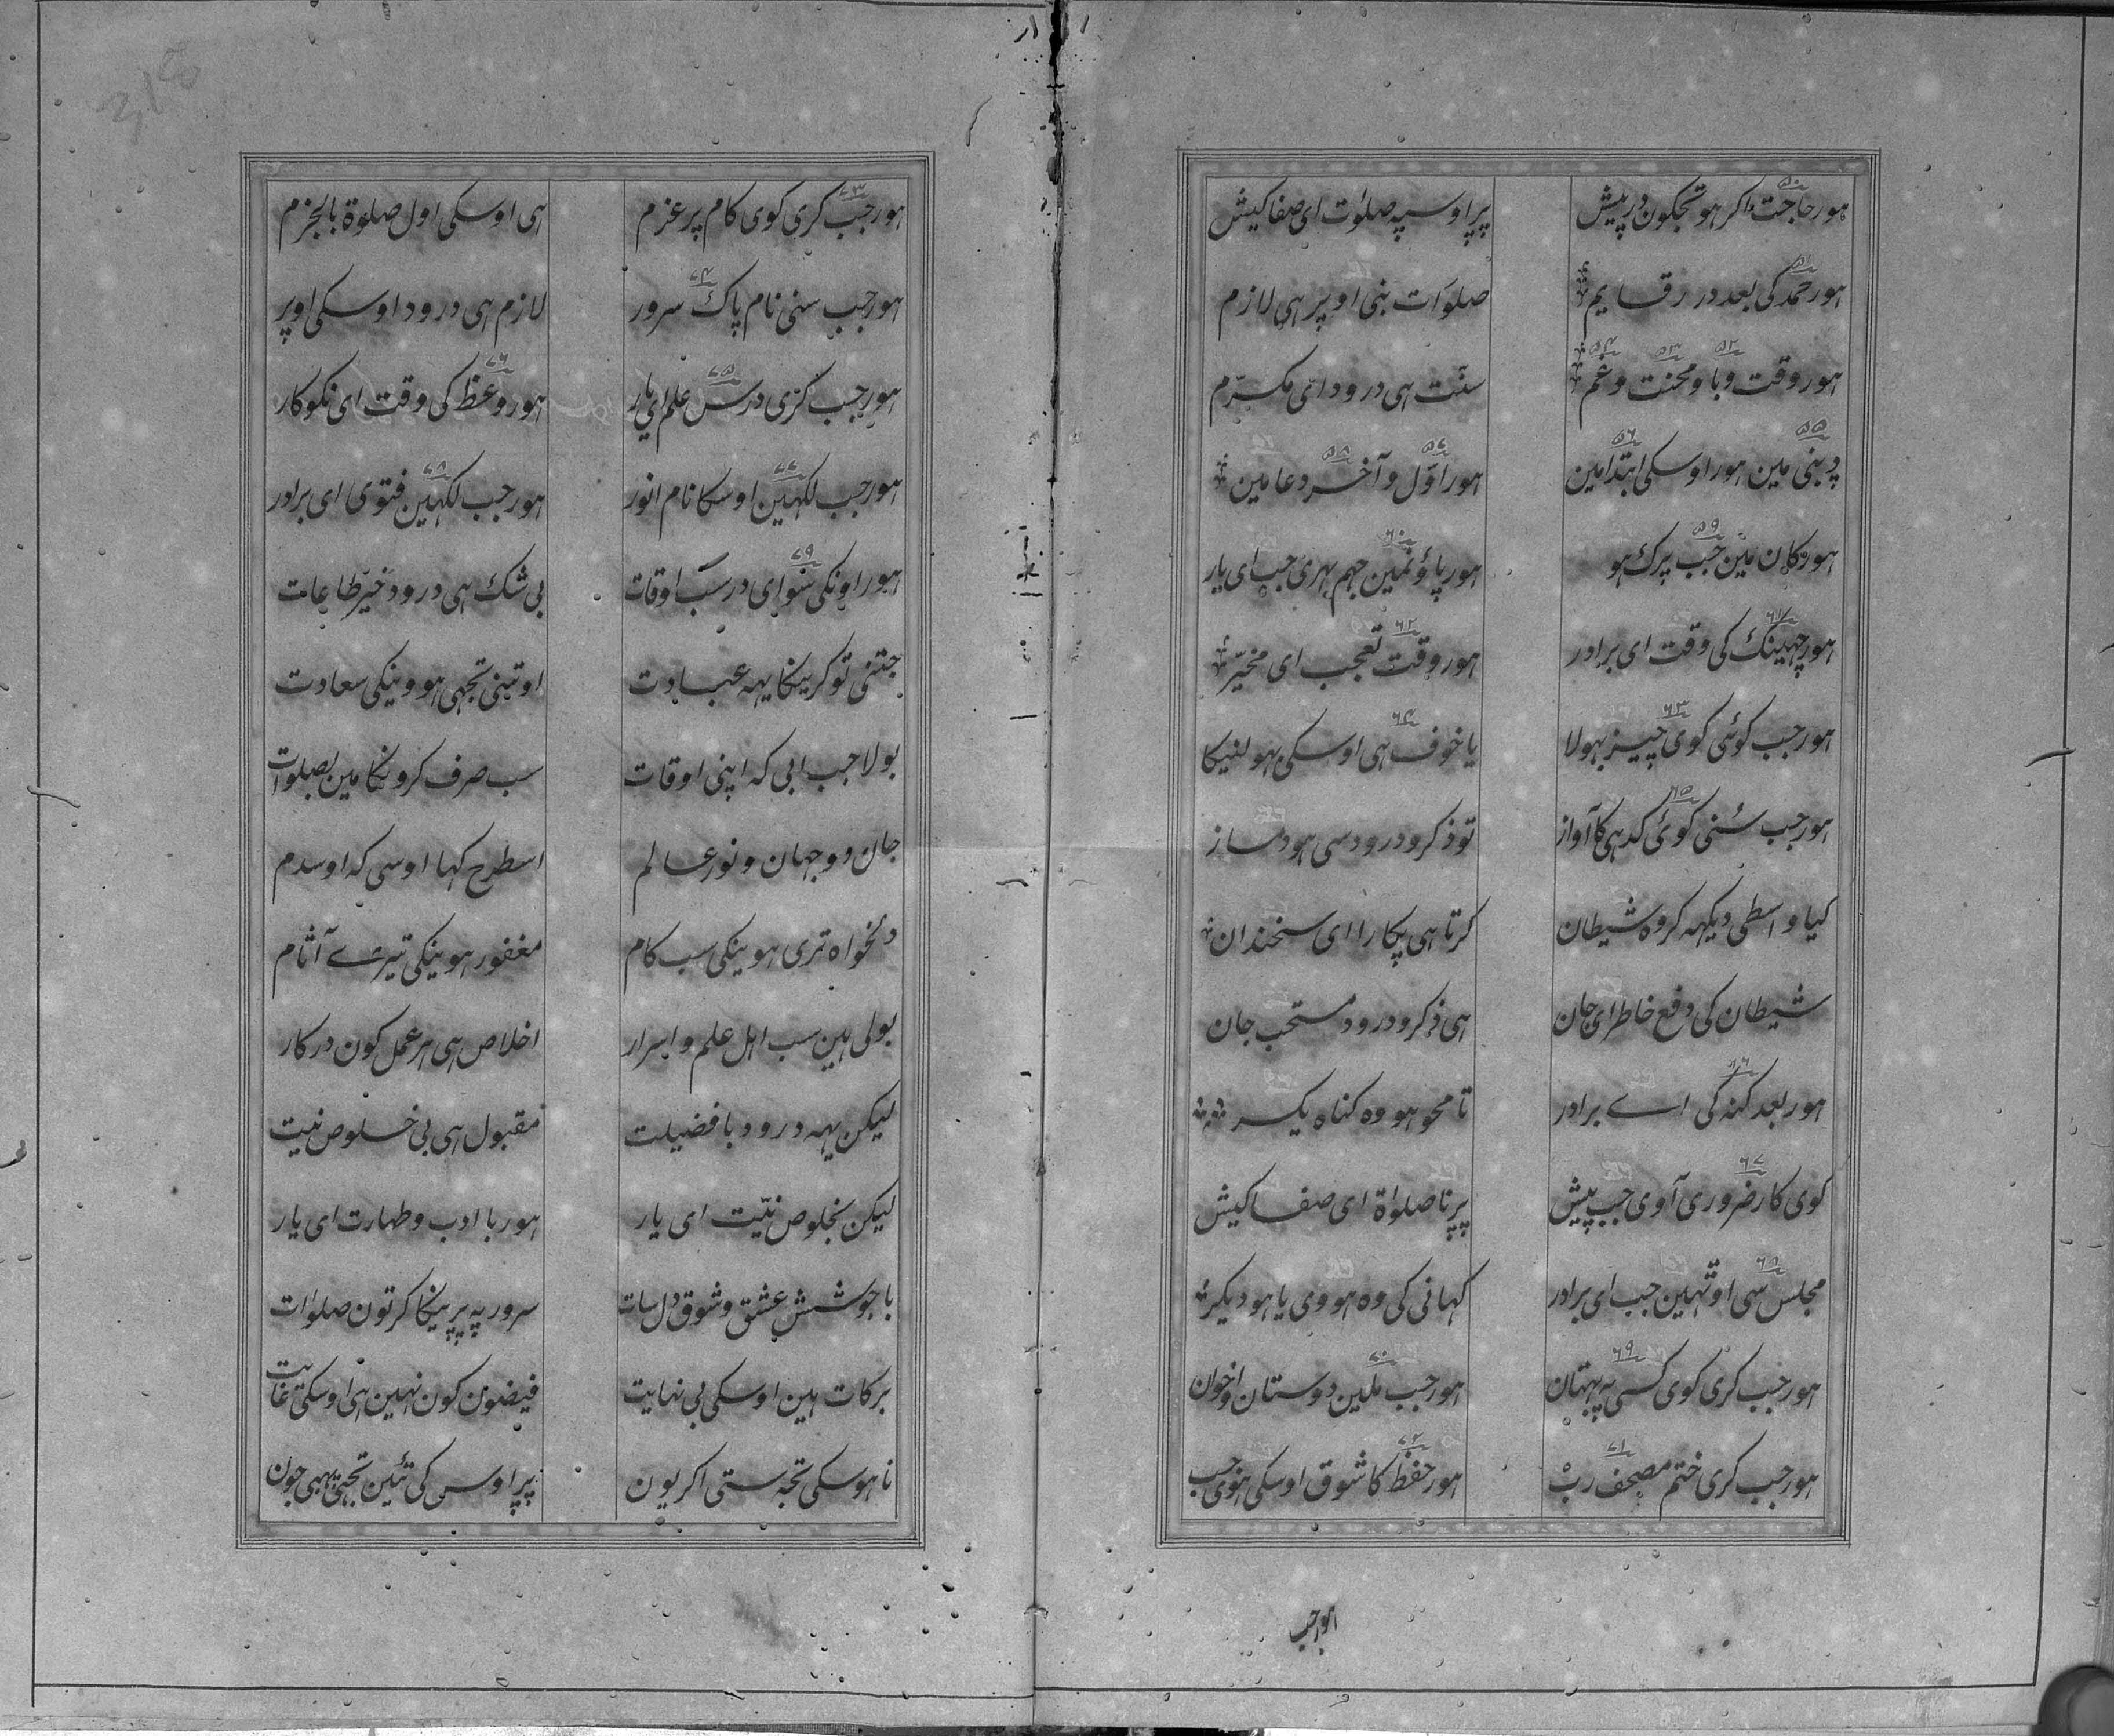 هور حاجت اگر هو تجکون در پیش پر اوسپه صلوٰت ای صفا کیش
هور حمد کی بعد در رقایم صلوٰات بنی اوپر هی لازم
هور وقت وبا و محنت و غم سنّت هی درود ای مکرّم
هور اوسکی ابتدا مین هور اوّل و آخر دعا مین
هور کان مین جب پرک هو هور پاؤنمین جهم بهری جب ای یار
هور چهینک کی وقت ای برادر هور وقت تعجب ای مخیّر
هور جب کوئی کوی چیز بهولا یا خوف هی اوسکی بهولنیکا
هور جب سُنی کوئی کدهی کا آواز تو ذکر و درود سی هو دمساز
کیا واسطی دیکهه کر وه شیطان کرتا هی پکارا ای سخندان
شیطان کی دفع خاطر ای جان هی ذکر و درود مستحب جان
هور بعد کنه کی اے برادر تا محو هو وه کناه یکسر
کوی کار ضروری آوی جب پیش پرنا صلوٰة ای صفا کیش
مجلس سی اوتهین جب ای برادر کهانی کی وه هووی یا هو دیکر
هور جب کری کوی کسی په بهتان هور جب ملین دوستان و اخوان
هور جب کری ختم مصحف ربّ هور حفظ کا شوق اوسکی هوی جب
هور جب
هور جب کری کوی کام پر عزم هی اوسکی اول صلوة بالجزم
هور جب سنی نام پاک سرور لازم هی درود اوسکی اوپر
هور جب کری درس علم ای یار هور وعظ کی وقت ای نکوکار
هور جب لکهین اوسکا نام انور هور جب لکهین فتوی ای برادر
هور اونکی سوای در سب اوقات بی شک هی درود خیر طاعات
جتنی تو کرینکا یهه عبادت اوتنی تجهی هووینکی سعادت
بولا جب ابی که اپنی اوقات سب صرف کرونکا مین بصلوات
جان دو جهان و نور عالم اسطرح کها اوسی که اوسدم
دلخواه تری هوینکی سب کام مغفور هوینکی تیرے آثام
بولی هین سب اهل علم و اسرار اخلاص هی هر عمل کون درکار
لیکن یهه درود با فضیلت مقبول هی بی خلوص نیت
لیکن بخلوص نیّت ای یار هور با ادب و طهارت ای یار
با جوشش عشق و شوق دل سات سرور په پرینکا کر تون صلوٰات
برکات هین اوسکی بی نهایت فیضون کون نهین هی اوسکی غایت
نا هوسکی تجه ستی اکر یون پر اوس کی تئین تجتی بهی جون